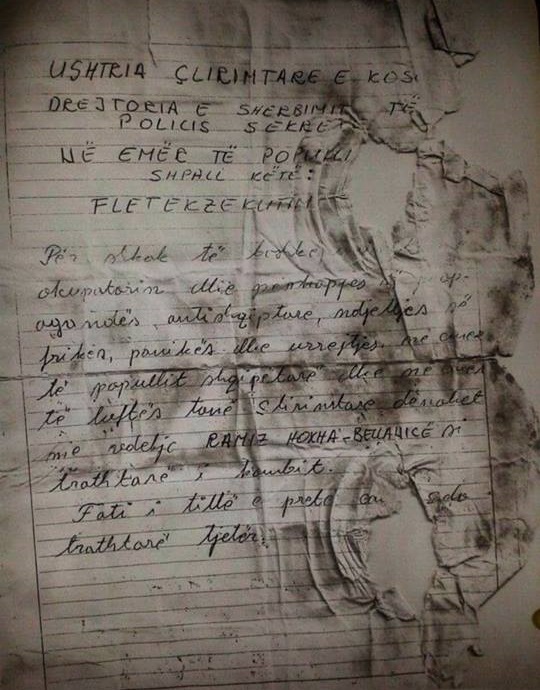 USHTRIA ÇLIRIMTARE E KOS
DREJTORIA E SHERBIMIT TË
POLICIS SEKRET
NË EMËR TË POPULLI
SHPALL KËTË:
FLETEKZEKUTIM
Për shkak të
okupatorin dhe përhapjes së prop-
agandës antishqiptare, ndjelljes së
frikës, panikës dhe urrejtjes në emër
të popullit shqipetarë dhe në emër
të luftës tonë çlirimtare dënohet
me vdekje RAMIZ HOXHA-BELLANICË si
trathtarë i kombit.
Fati i tillë e pret çdo
trathtarë tjetër.